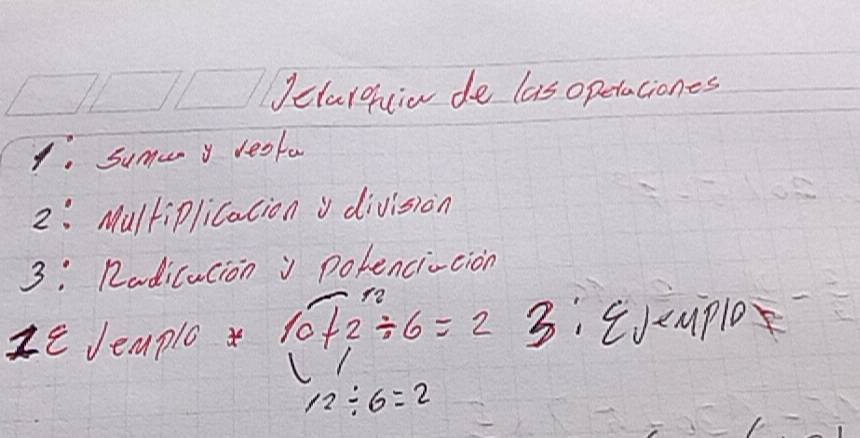 Jerarquia de las operaciones
1: Suma y resta
2: Multiplicacion y división
3: Radicación y potenciación
12
1 Ejemplo * 10+2÷6=2 3: Ejemplo
12÷6=2